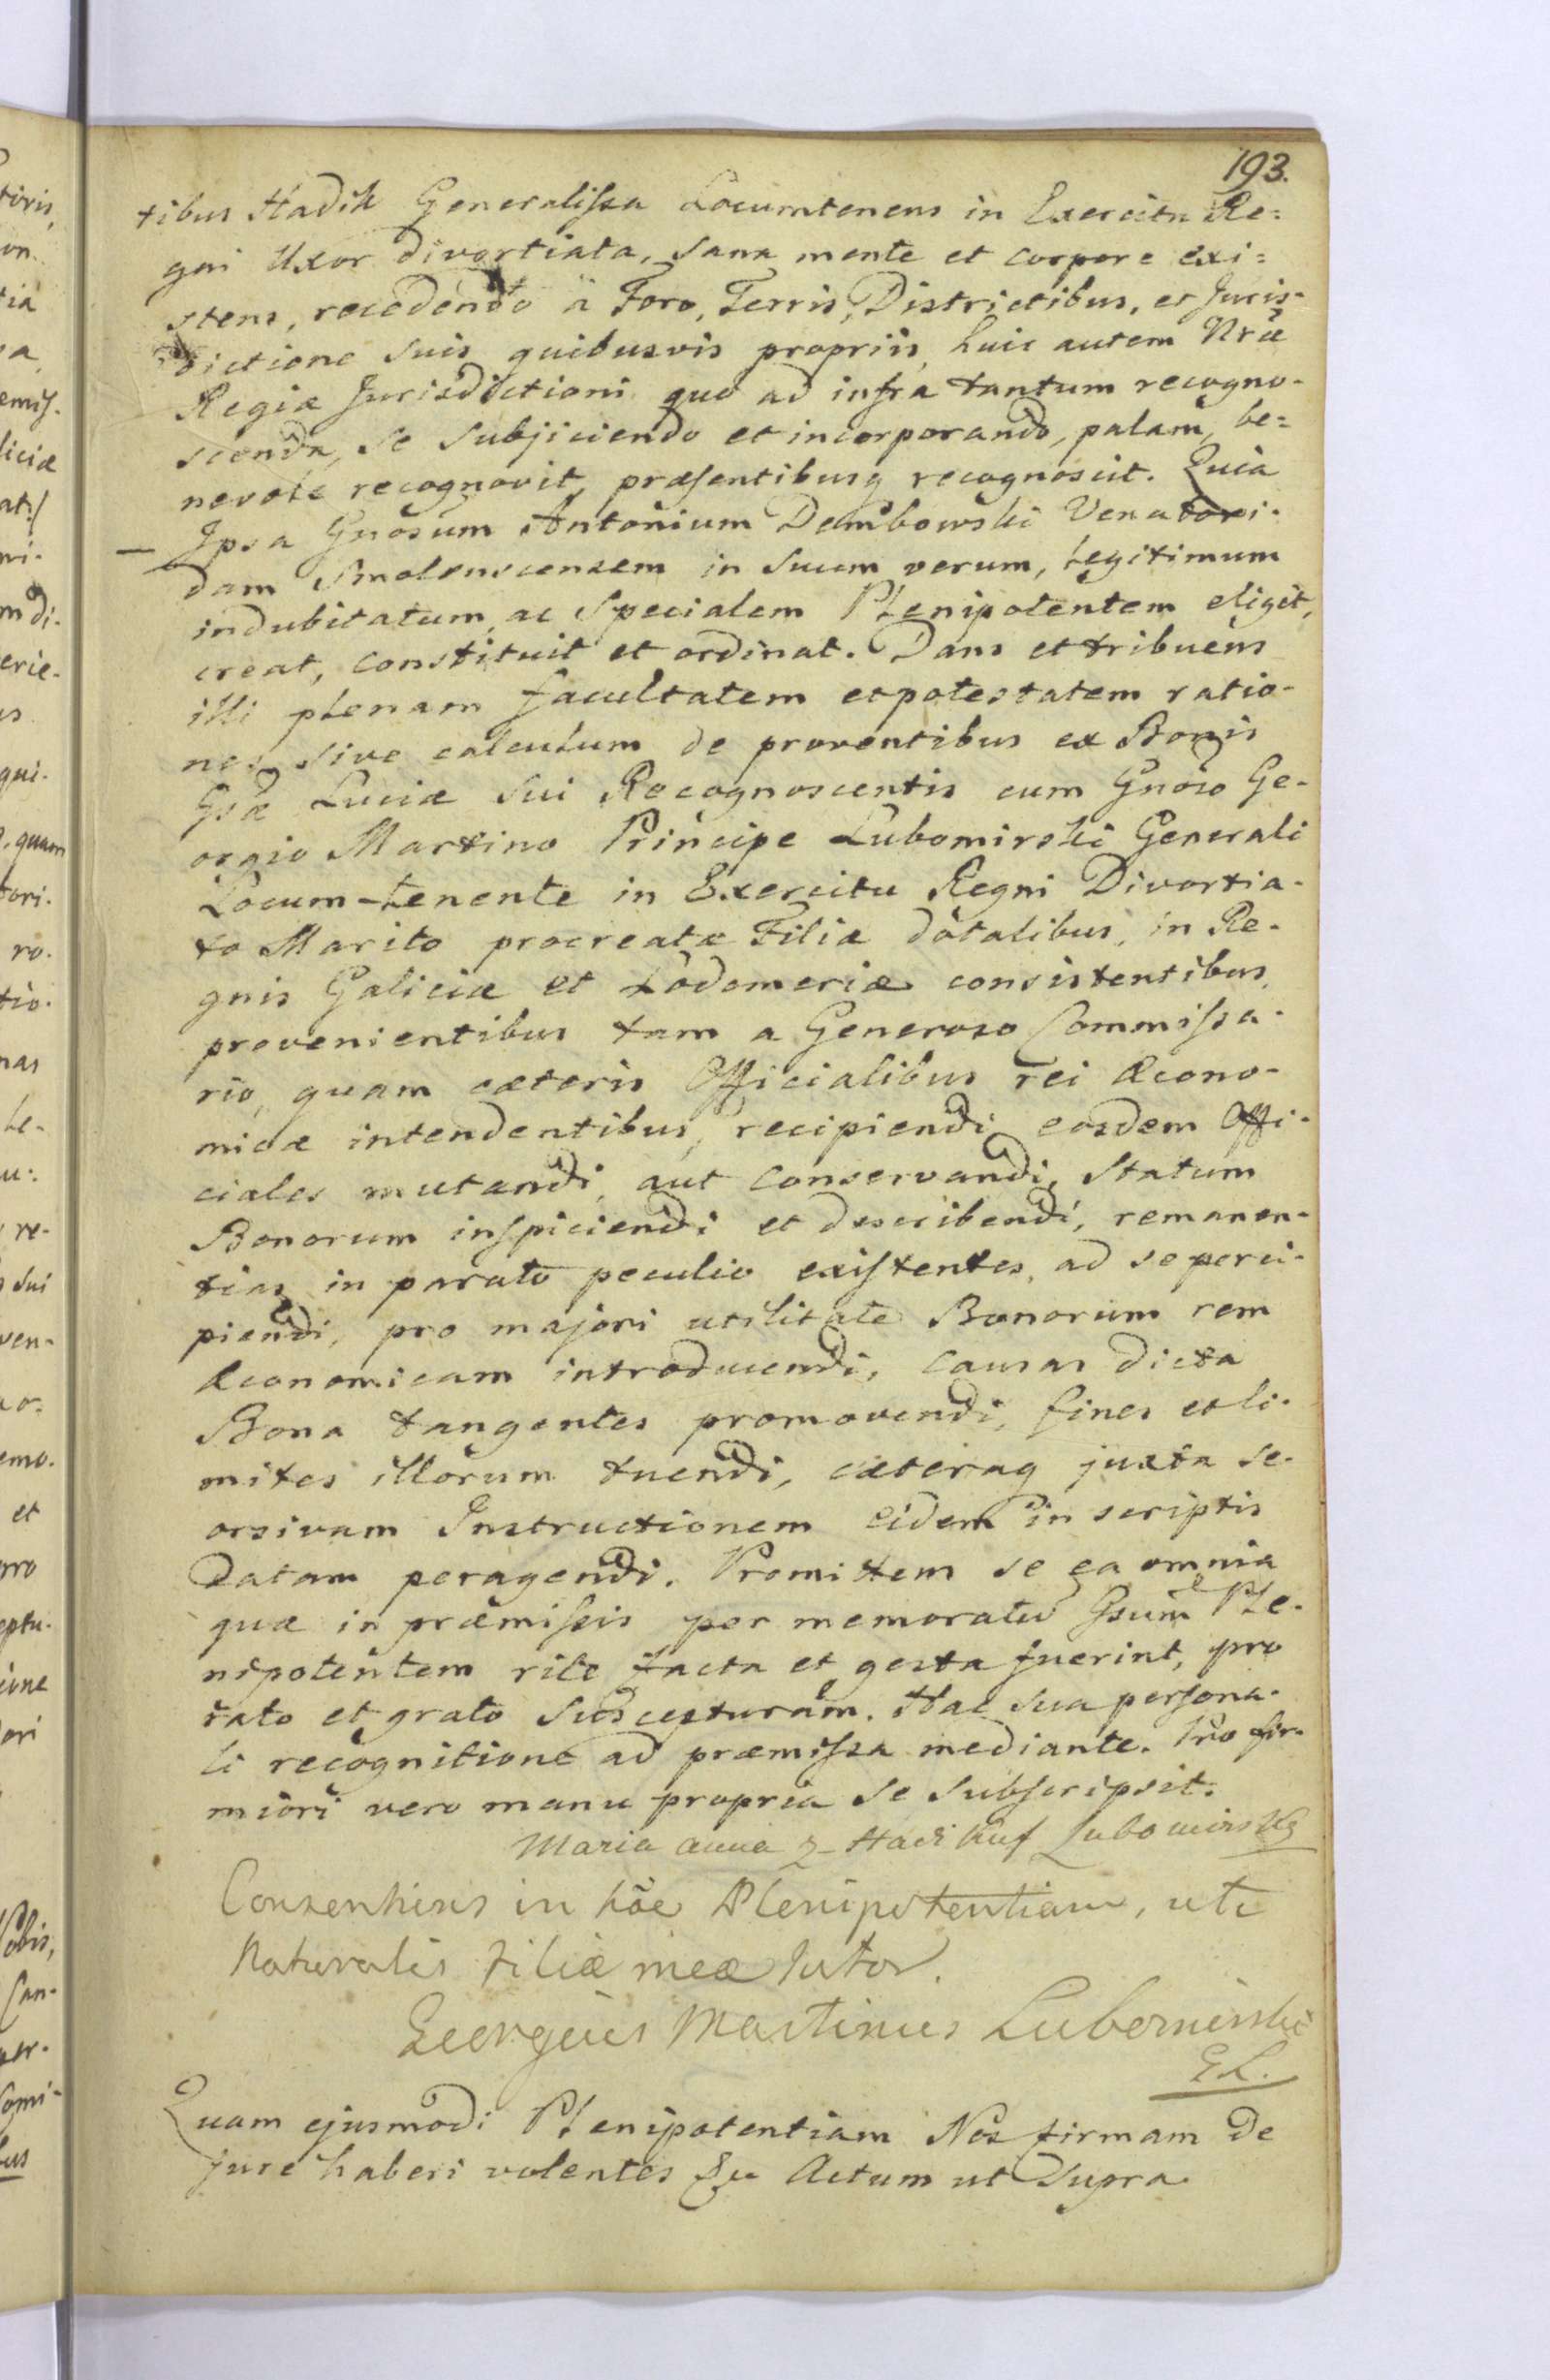 193.
tibus Hadik Generalissa Locumtenens in Exercitu Re=
gni Uxor divortiata, sana mente et corpore exi=
stens, recedendo à Foro, Terris, Districtibus, et Juris-
dictione suis quibusvis propriis, huic autem Nræ
Regiæ Jurisdictioni quo ad infra tantum recogno-
scenda, se subjiciendo et incorporando, palam, be=
nevole recognovit, præsentibusq recognoscit. Quia
— Ipsa Gnosum Antonium Dembowski Venatori-
dam Smolenscensem in suum verum, legitimum
indubitatum, ac specialem Plenipotentem eligit,
creat, constituit et ordinat. Dans et tribuens
illi plenam facultatem et potestatem ratio-
nes sive calculum de proventibus ex Bonis
Gsæ Luciæ sui Recognoscentis cum Gnoso Ge-
orgio Martino Principe Lubomirski Generali
Locum-tenente in Exercitu Regni Divortia-
to Marito procreatæ Filiæ dotalibus, in Re-
gnis Galiciæ et Lodomeriæ consistentibus,
provenientibus tam a Generoso Commissa-
rio, quam cæteris Officialibus rei Æcono-
micæ intendentibus, recipiendi, eosdem Offi-
ciales mutandi, aut conservandi, Statum
Bonorum inspiciendi et describendi, remanen-
tias in parato peculio existentes, ad se perci-
piendi, pro majori utilitate Bonorum rem
Æconomicam introducendi, causas dicta
Bona tangentes promovendi, fines et li-
mites illorum tuendi, cæteraq juxta se-
orsivam Instructionem eidem in scriptis
Datam peragendi. Promittens se ea omnia
quæ in præmissis per memoratū Gsum Ple-
nipotentem rite facta et gesta fuerint, pro
rato et grato suscepturam. Hac sua persona-
li recognitione ad præmissa mediante. Pro fir-
miori vero manu propria se subscripsit.
Maria anna z Lubomirska
Consentiens in hãc Plenipotentiam, uti
Naturalis Filiæ meæ tutor.
Georgius Martinus Lubomirski
GL.
Quam ejusmodi Plenipotentiam Nos firmam de
jure haberi volentes Actum ut Supra